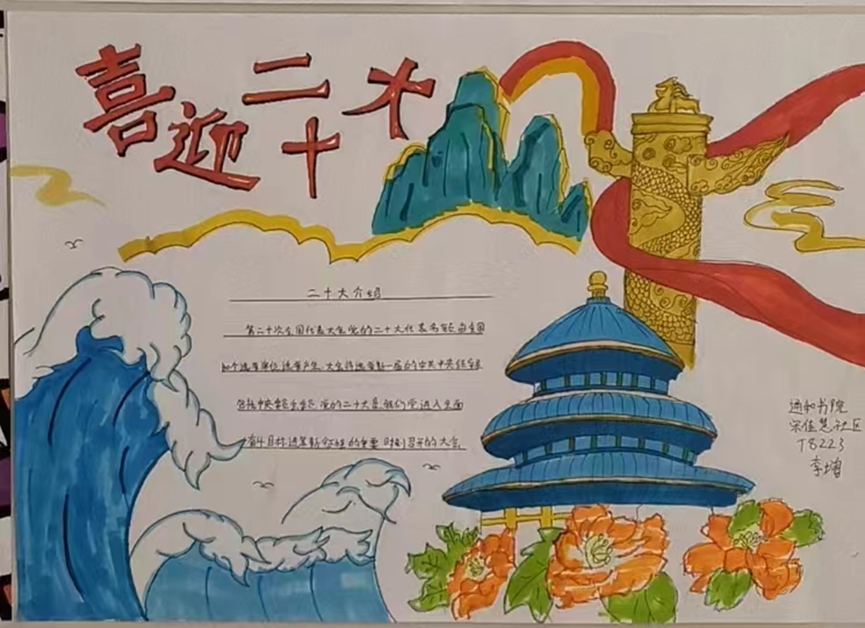 喜迎二十大
二十大介绍
第二十次全国代表大会党的二十大代表名额由全国
选举单位选举产生.大会将选举新一届的中共中央
党的二十大是我们党进入全面
的重要时刻召开的大会
通和书院
宋佳慧社区
T8223